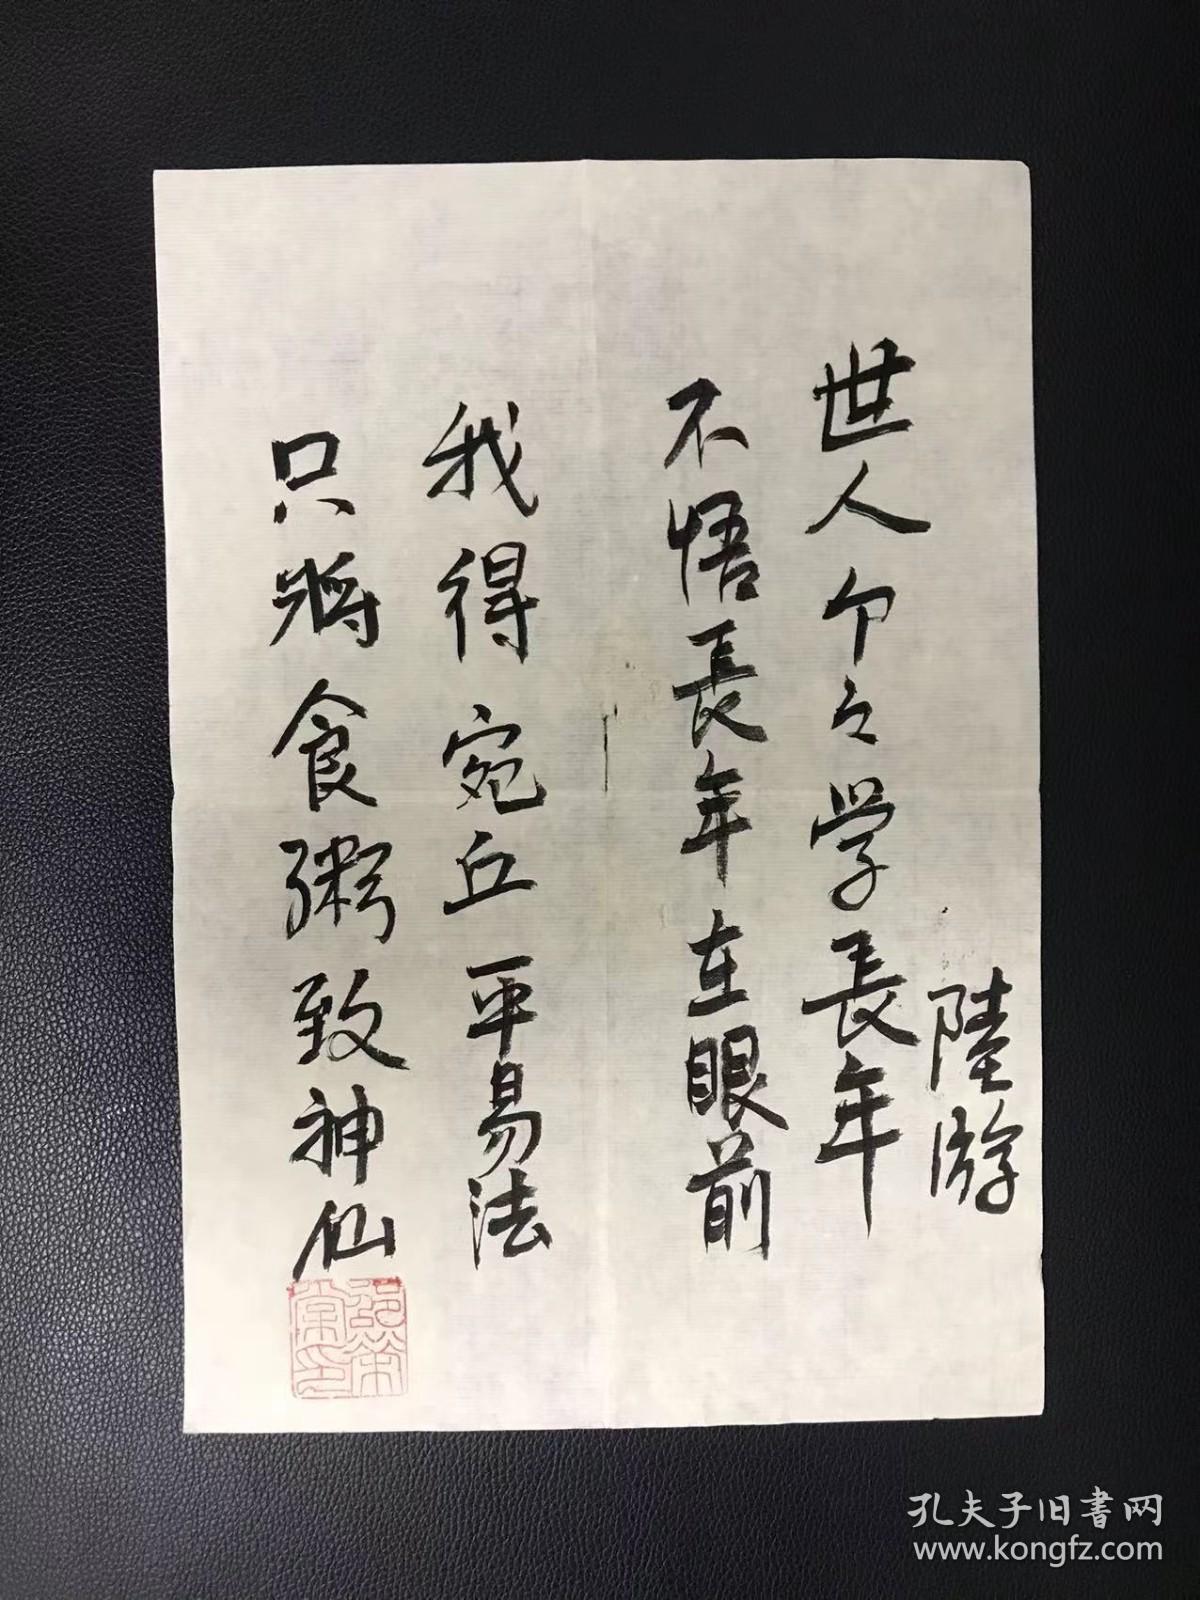 陸游
世人个々学長年
不悟長年在眼前
我得宛丘平易法
只将食粥致神仙
孔夫子旧書网
www.kongfz.com